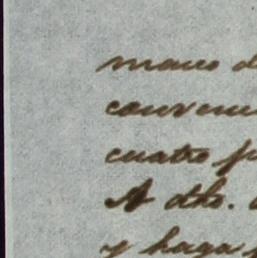 mano d
convene
cuatro p
A dho.
y haga